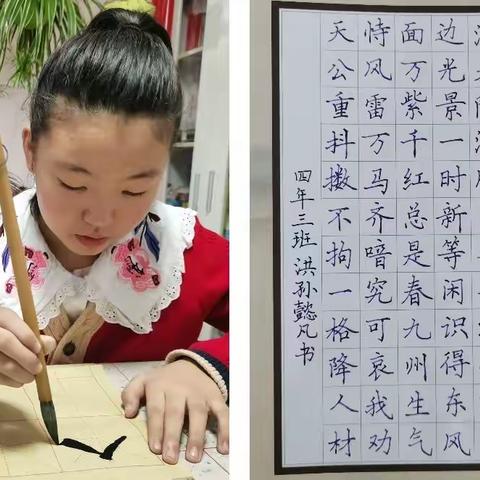 边光景一时新等闲识得东风
面万紫千红总是春九州生气
恃风雷万马齐喑究可哀我劝
天公重抖擞不拘一格降人材
四年三班 洪孙懿凡书